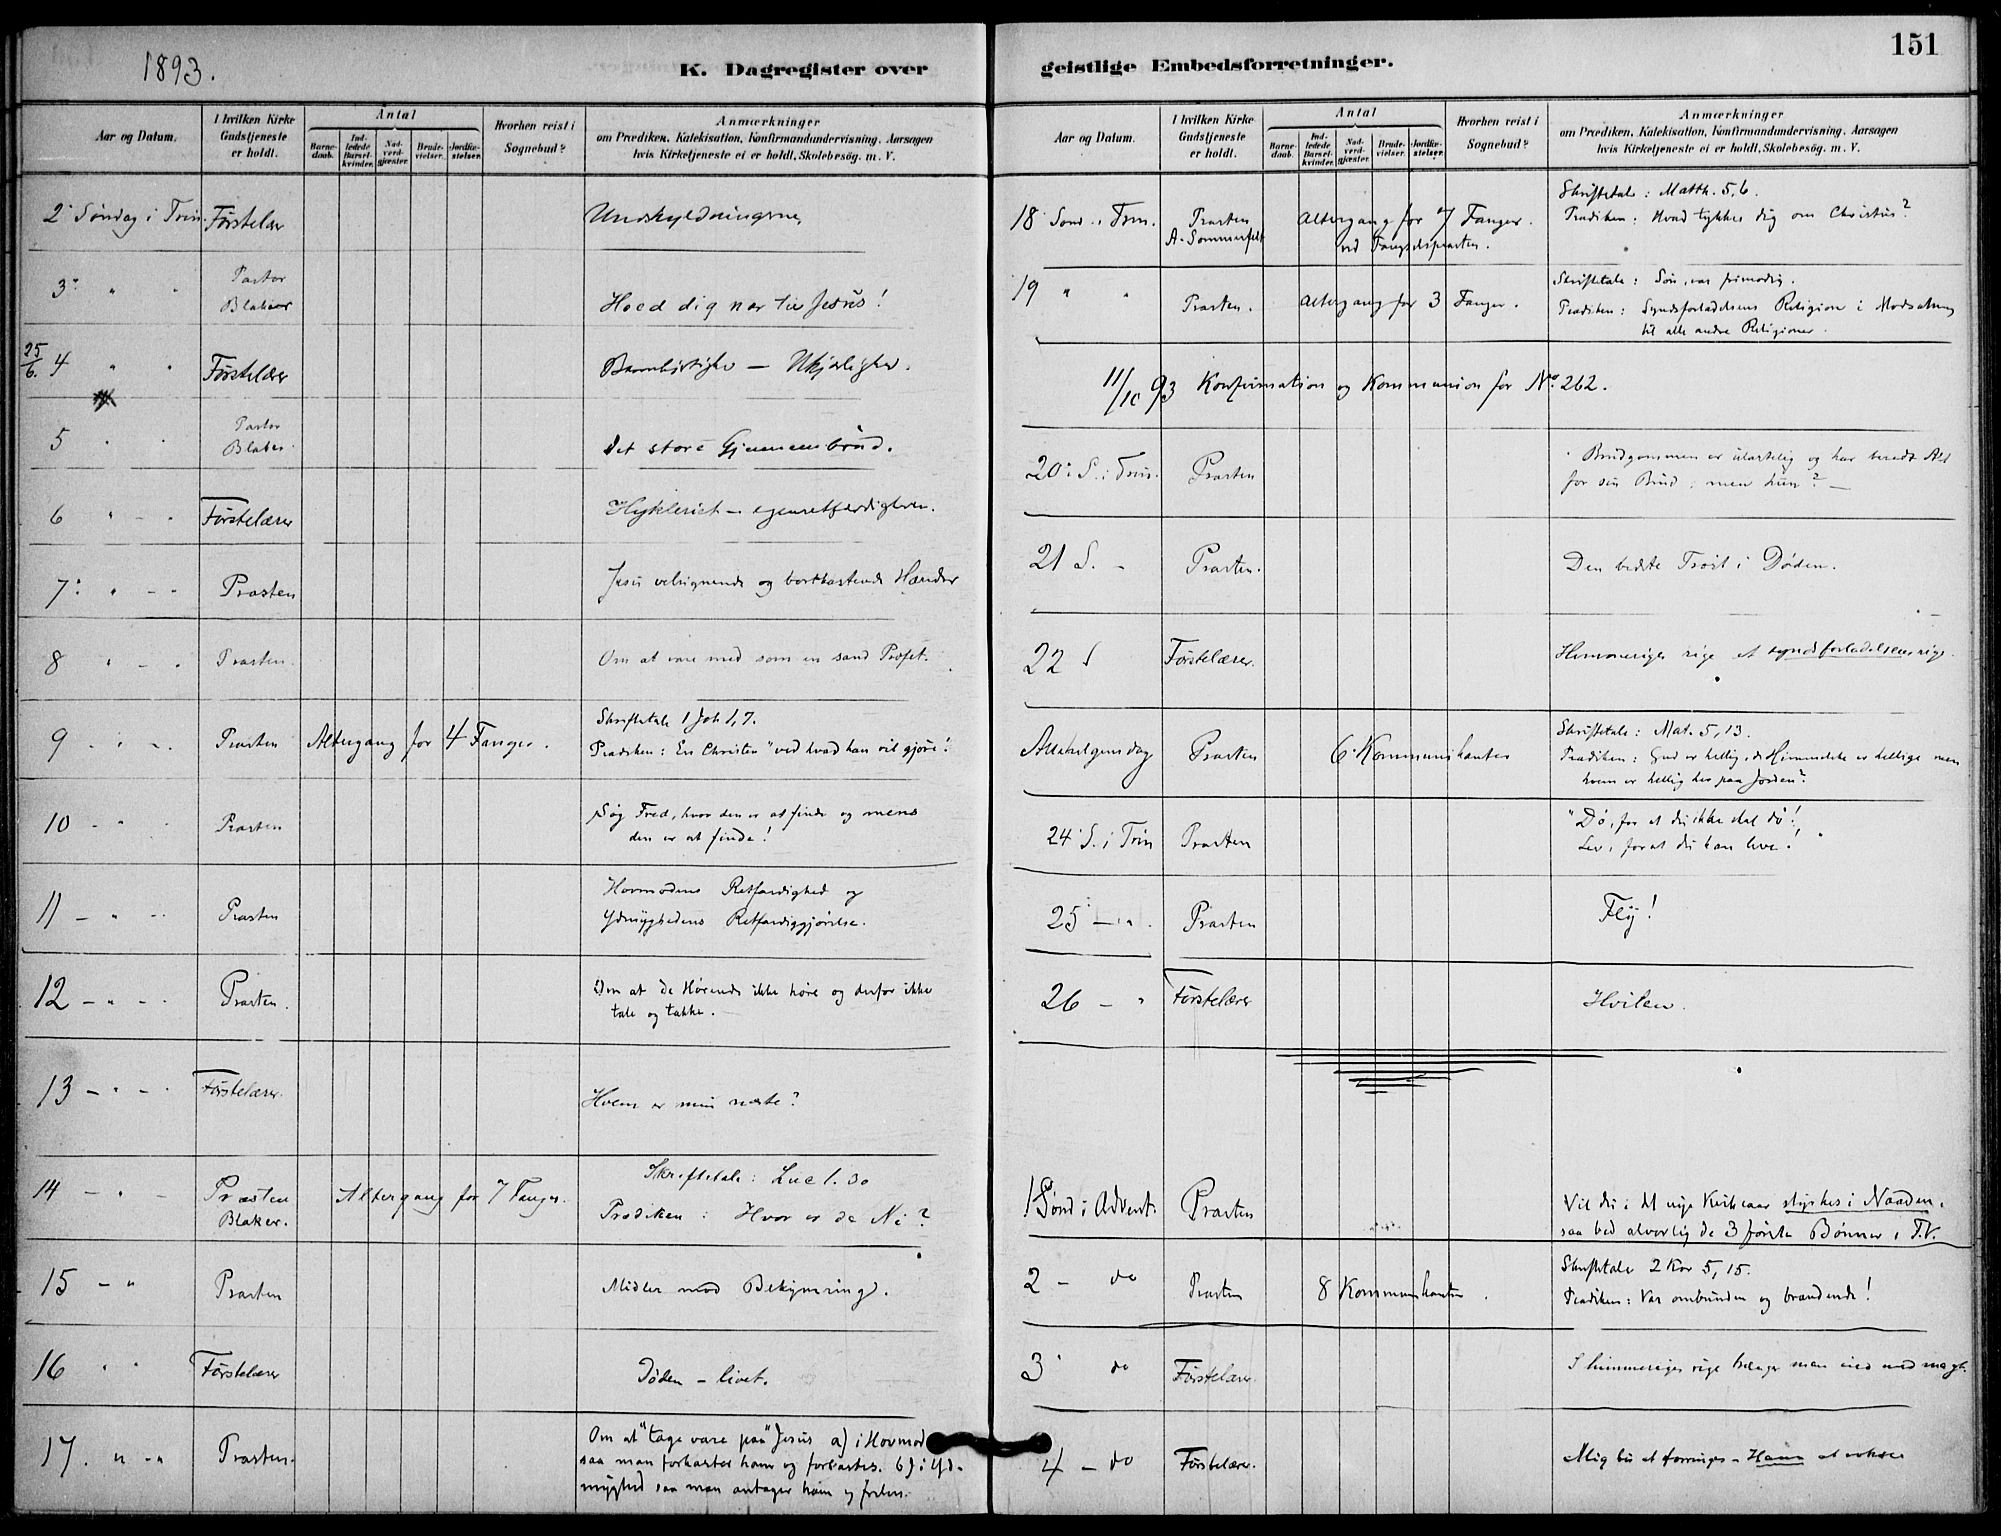 1893.
K. Dagregister over
Aar og Datum.
I hvilken Kirke
Gudstjeneste
er holdt.
Antal
Barne-
daab.
Ind-
ledede
Barsel-
kvinder.
Nad-
verd-
gjæster.
Brude-
vielser.
Jordfæ-
stelser.
Hvorhen reist i
Sognebud?
Anmærkninger
om Prædiken, Katekisation, Konfirmandundervisning, Aarsagen
hvis Kirketjeneste ei er holdt, Skolebesøg. m. V.
2' Søndag i Trin. Førstelær Undskyldningerne
3' " " Pastor
Blaker Hold dig nær til Jesus!
25/6. 4 " " Førstelærer Barmhjertighe — Ukjærlighe.
5 " " Pastor
Blaker Det store Gjennembrud.
6 " - " Førstelærer Hykleriet — egenretfærdigheden.
7' " - " Præsten Jesu velsignende og bortkastende Hænder
8 " - " Præsten. Om at være med som en sand Profet.
9 " " - Præsten Altergang for 4 Fanger. Skriftetale 1 Joh 1,7.
Prædiken: En Christen "ved hvad han vil gjøre!
10 - " " Præsten Søg Fred, hvor den er at finde og mens
den er at finde!
11 - " - Præsten Hovmodens Retfærdighed og
Ydmyghedens Retfærdiggjørelse.
12 - " - Præsten. Om at de Hørende ikke høre og derfor ikke
tale og takke.
13 - " - Førstelærer. Hvem er min næste?
14 - " - Præsten
Blaker. Altergang for 7 Fanger. Skriftetale: Luc 1.30
Prædiken: Hvor er de Ni?
15 - " Præsten Midler mod Bekymring.
16 " " Førstelærer Døden - livet.
17. " - " Præsten. Om at "tage vare paa" Jesus a) i Hovmod
saa man forkaster ham og forkastes. b) i Yd-
myghed saa man antager ham og frelses.
geistlige Embedsforretninger.
151
Aar og Datum.
I hvilken Kirke
Gudstjeneste
er holdt.
Antal
Barne-
daab.
Ind-
ledede
Barsel-
kvinder.
Nad-
verd-
gjæster.
Brude-
vielser.
Jordfæ-
stelser.
Hvorhen reist i
Sognebud?
Anmærkninger
om Prædiken, Katekisation, Konfirmandundervisning, Aarsagen
hvis Kirketjeneste ei er holdt, Skolebesøg. m. V.
18 Sønd. i Trin. Præsten
A. Sommerfelt Altergang for 7 Fanger.
ved Fængselspræsten. Skriftetale: Matth. 5,6.
Prædiken: Hvad tykkes dig om Christus?
19 " " Præsten. Altergang for 3 Fanger. Skriftetale: Søn, vær frimodig.
Prædiken: Syndsforladelsens Religion i Modsætning
til alle andre Religioner.
11/10 93 Konfirmation og Kommunion for No. 262.
20' S. i Trin. Præsten Brudgommen er ulastelig og har beredt Alt
for sin Brud, men hun? —
21 S. - Præsten. Den bedste Trøst i Døden.
22 S Førstelærer. Himmeriges rige et syndsforladelsens rige
Allehelgensdag Præsten 6 Kommunikanter Skriftetale: Mat. 5,13.
Prædiken: Gud er hellig, de Himmelske er hellige men
hvem er hellig her paa Jorden?
24' S. i Trin Præsten "Dø, for at du ikke skal dø!
Lev, for at du kan leve!"
25 - " . Præsten Fly!
26 - " Førstelærer Hvilen.
1 Sønd i Advent. Præsten Vil du i det nye Kirkeaar styrkes i Naaden,
saa bed alvorlig de 3 første Bønner i F.V.
2 - do Præsten 8 Kommunikanter. Skriftetale 2 Kor 5,15.
Prædiken: Vær ombunden og brændende!
3' do Førstelærer. I himmeriges rige trænger man ind med magt.
4 - do Førstelærer. Mig bør at forringes - Ham at vokse